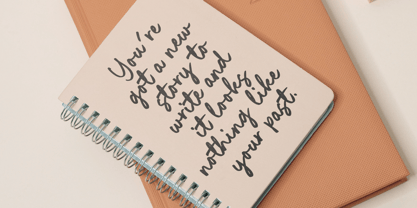 You're
got a new
story to
write and
it looks
nothing like
your past.